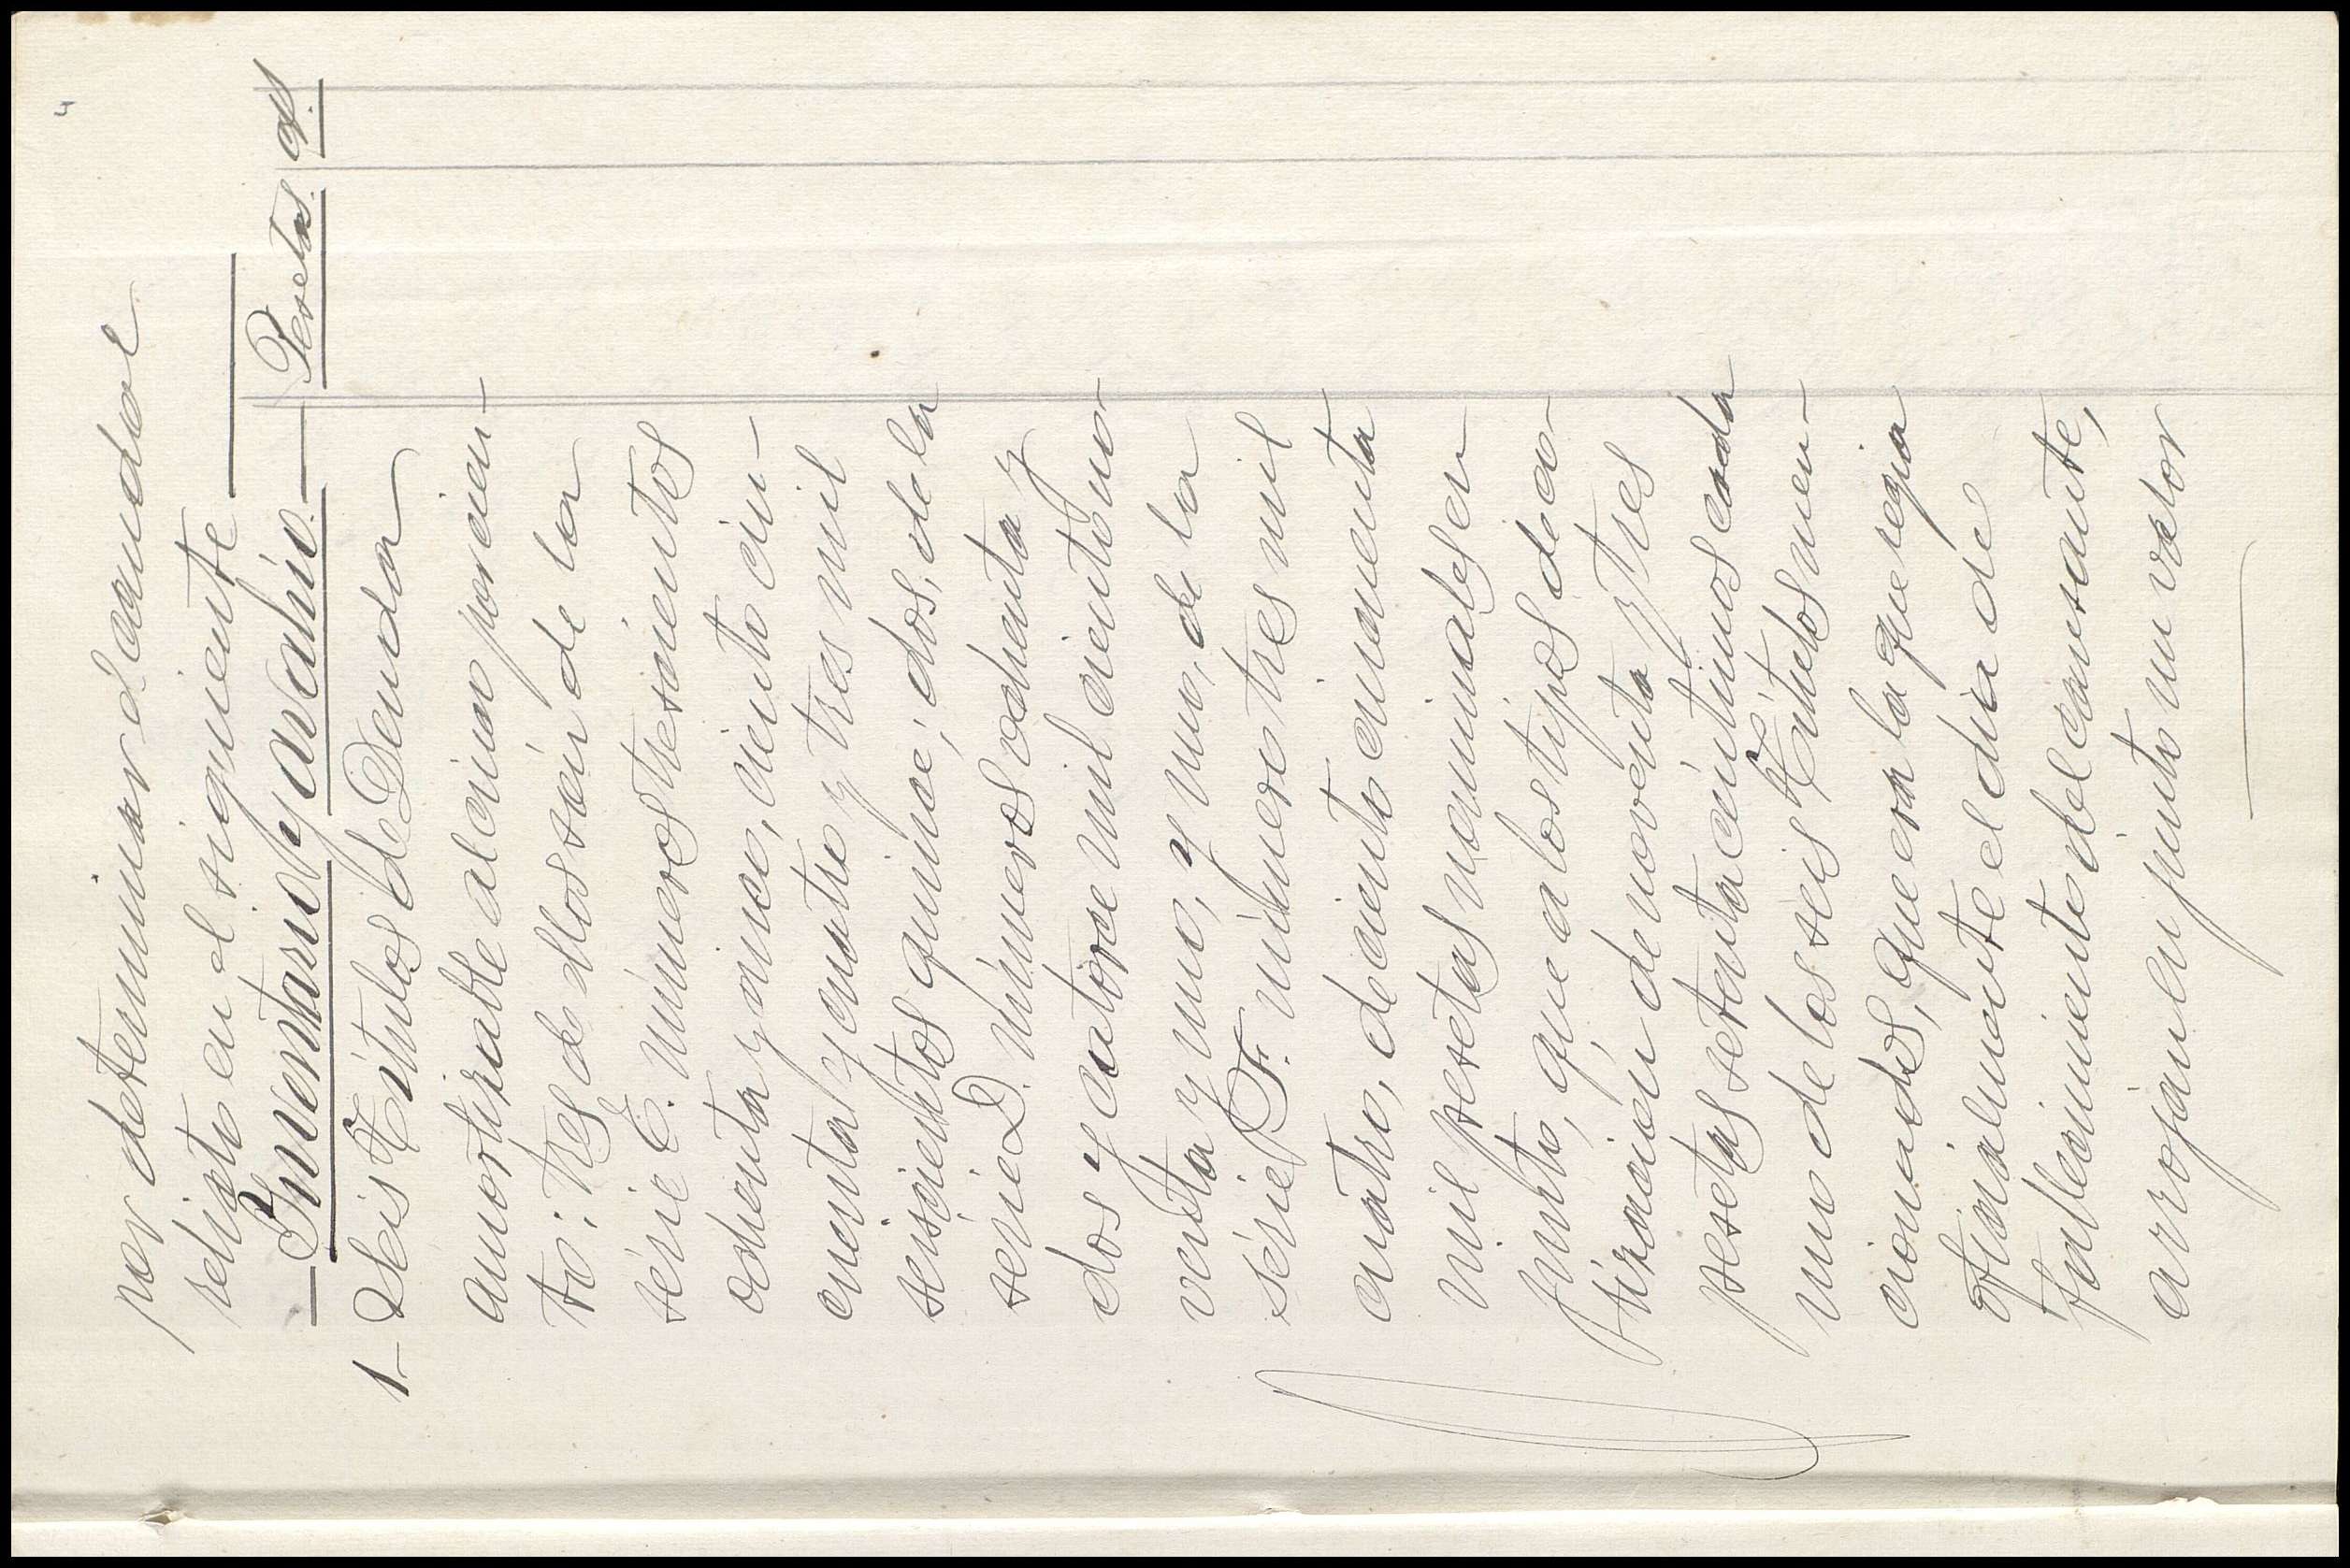 por determinar el caudal
relicto en el siguiente
Inventario y avalúo. Pesetas. cts.
1- Seis Títulos de Deuda
amortizable al cinco por cien-
to: tres de ellos son de la
série C. números trescientos
ochenta y cinco, ciento cin-
cuenta y cuatro y tres mil
seiscientos quince; dos, de la
serie D. números ochenta y
dos y catorce mil ciento no-
venta y uno, y uno, de la
série F. número tres mil
cuatro, de ciento cincuenta
mil pesetas nominales en
junto, que a los tipos de co-
tización de noventa y tres
pesetas setenta céntimos cada
uno de los seis Títulos men-
cionados, que era la que regia
oficialmente el dia de
fallecimiento del causante,
arrojan en junto un valor